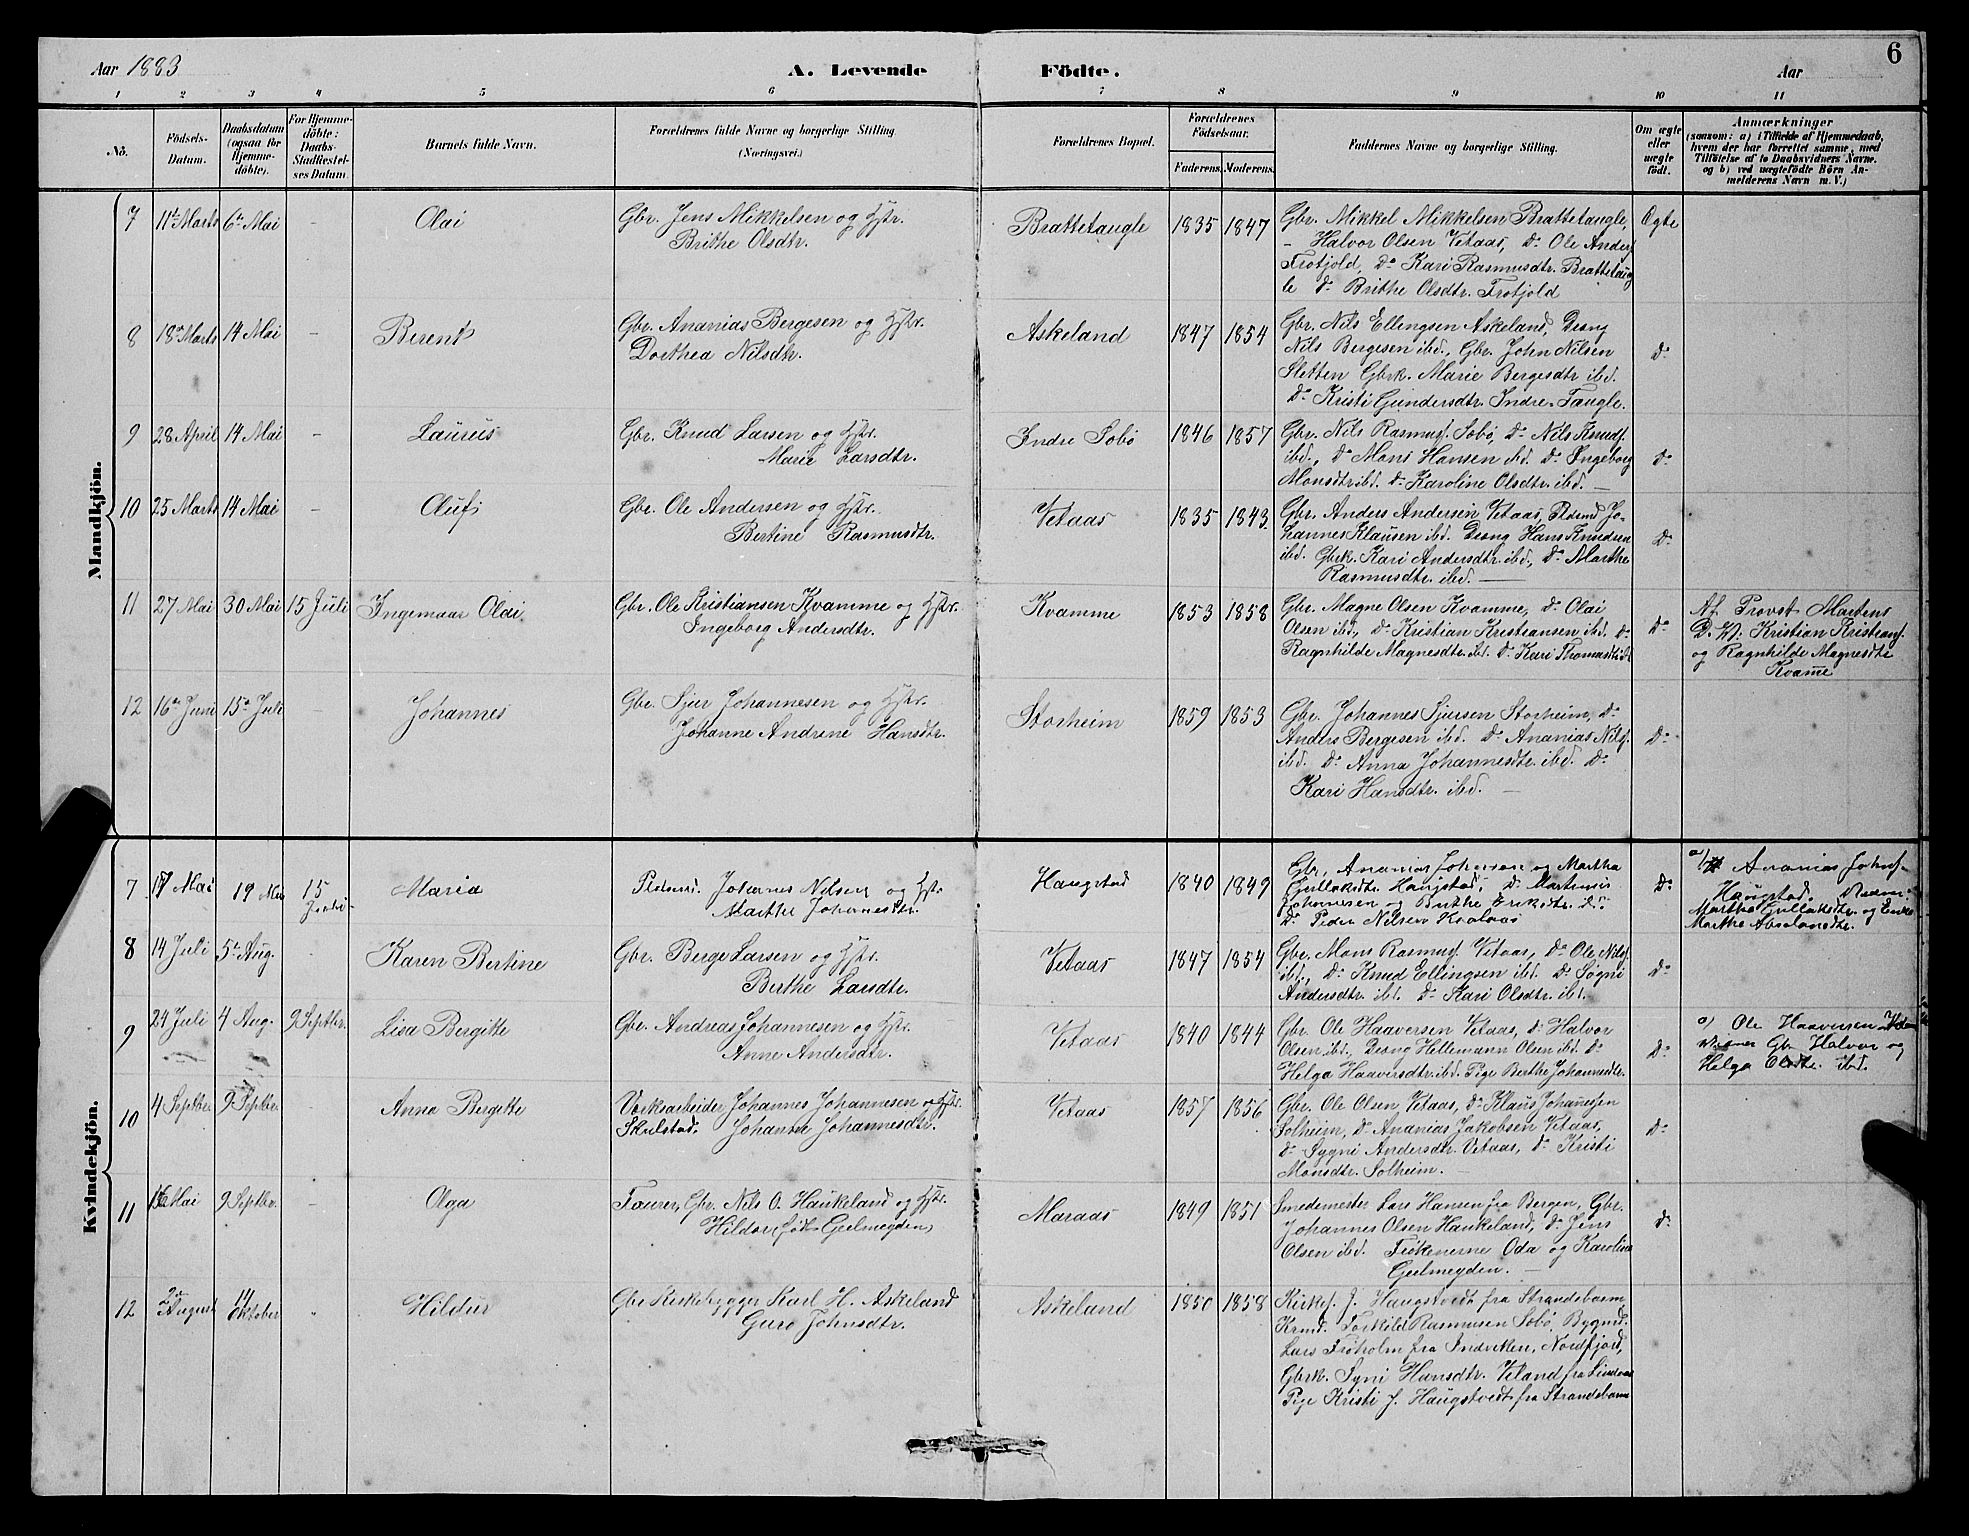 6
Aar 1883
A. Levende
Födte.
Aar
1 2 3 4 5 6 7 8 9 10 11
No.
Födsels-
Datum.
Daabsdatum
(ogsaa for
Hjemme-
döbte).
For Hjemme-
döbte:
Daabs-
Stadfæstel-
ses Datum.
Barnets fulde Navn.
Forældrenes fulde Navne og borgerlige Stilling
(Næringsvei.)
Forældrenes Bopæl.
Forældrenes
Födselsaar.
Faderens. Moderens.
Faddernes Navne og borgerlige Stilling.
Om ægte
eller
uægte
födt.
Anmærkninger
(saasom: a) i Tilfælde af Hjemmedaab,
hvem der har forrettet samme, med
Tilföielse af to Daabsvidners Navne.
og b) ved uægtefödte Börn An-
melderens Navn m. V.)
Mandkjön.
7 11te Marts 6te Mai - Olai
Gbr. Jens Mikkelsen og Hstr.
Brithe Olsdtr.
Brattetaugle 1835 1847
Gbr. Mikkel Mikkelsen Brattetaugle,
- Halvor Olsen Vetaas, Do Ole Anders
Frotjold, Do Kari Rasmusdtr. Brattetaug
le Do Brithe Olsdtr. Frotjold
Ægte
8 18de Marts 14 Mai - Berent
Gbr. Ananias Bergesen og Hstr.
Dorthea Nilsdtr.
Askeland 1847 1854
Gbr. Nils Ellingsen Askeland, Dreng
Nils Bergesen ibd., Gbr. John Nilsen
Sletten Gbrk. Marie Bergesdtr ibd.
Do Kristi Gundersdtr. Indre-Taugle.
Do
9 28 April 14 Mai - Laurits
Gbr. Knud Larsen og Hstr.
Marie Larsdtr.
Indre Sobö 1846 1857
Gbr. Nils Rasmus. Sobö, Do Nils Knuds.
ibd., Do Mons Hansen ibd. Do Ingeborg
Monsdtr ibd. Do Karoline Olsdtr. ibd. -
Do
10 25 Marts 14 Mai - Oluf
Gbr. Ole Andersen og Hstr.
Bertine Rasmusdtr.
Vetaas 1835 1843
Gbr. Anders Andersen Vetaas, Plsmd Jo-
hannes Klausen ibd. Dreng Hans Knudsen
ibd. Gbrk. Kari Andersdtr. ibd., Do Marthe
Rasmusdtr. ibd. -
Do
11 27 Mai 30 Mai 15 Juli Ingemaar Olai.
Gbr. Ole Kristiansen Kvamme og Hstr.
Ingeborg Andersdtr.
Kvamme 1853 1858
Gbr. Magne Olsen Kvamme, Do Olai
Olsen ibd., Do Kristian Kristiansen ibd. Do
Ragnhilde Magnesdtr. ibd. Do Kari Thomasdtr ibd
Do
Af Provst Martens
D. V: Kristian Kristians.
og Ragnhilde Magnesdtr
Kvamme
12 16de Juni 15de Juli - Johannes
Gbr. Sjur Johannesen og Hstr.
Johanne Andrine Hansdtr.
Storheim 1859 1853
Gbr. Johannes Sjursen Storheim, Do
Anders Bergesen ibd. Do Ananias Nils.
ibd. Do Anna Johannesdtr. ibd. Do
Kari Hansdtr. ibd. -
Do
Kvindekjön.
7 17 Mai 19 Mai 15 Juli Maria
Plsmd. Johannes Nilsen og Hstr
Marthe Johannesdtr.
Haugstad 1840 1849
Gbr, Ananias Johannesen og Martha
Gullaksdtr Haugstad, Do Martinus
Johannesen og Brithe Eriksdtr. Do
Do Peder Nilsen
Do
a) Ananias Johns-
Haugstad.
Martha Gullaksdtr. og Enke
Martha Absalonsdtr.
8 14 Juli 5te Aug. Karen Bertine
Gbr. Berge Larsen og Hstr.
Berthe Larsdtr.
Vetaas 1847 1854
Gbr. Mons Rasmus. Vetaas, Do Ole Nils.
ibd., Do Knud Ellingsen ibd. Do Sögni
Andersdtr. ibd. Do Kari Olsdtr. ibd.
Do
9 24 Juli 4 Aug. 9 Septbr. Lisa Bergitte
Gbr. Andreas Johannesen og Hstr.
Anne Andersdtr.
Vetaas 1840 1844
Gbr. Ole Haaversen Vetaas, Do Halvor
Olsen ibd., Dreng Hellemann Olsen ibd. Do
Helga Haaversdtr. ibd. Pige Berthe Johannesdtr.
Do
a) Ole Haaversen
Gbr Halvor og
Helga Olsdtr. ibd.
10 4 Septbr. 9 Septbr. Anna Bergitte
Værksarbeider Johannes Johannesen og Hstr.
Skulstad. Johanne Johannesdtr.
Vetaas 1857 1856
Gbr. Ole Olsen Vetaas, Do Klaus Johannessen
Solheim, Do Ananias Jakobsen Vetaas,
Do Sygni Andersdtr. Vetaas, Do Kristi
Monsdtr. Solheim. -
Do
11 16 Mai 9 Septbr. - Olga
Gbr. Nils O. Haukeland og Hstr.
Hilda, föd Geelmeyden,
Maraas 1849 1851
Smedemester Lars Hansen fra Bergen, Gbr.
Johannes Olsen Haukeland, Do Jens
Olsen ibd. Frökenerne Oda og Karolina
Geelmeyden. -
Do
12 2de August 14 Oktober " Hildur
Gbr Kirkebygger Karl H. Askeland
Guro Johnsdtr.
Askeland 1850 1858
Kirkes. J. Haugstvedt fra Strandebarm
Krmd. Torkild Rasmusen Sobö, Bygmd.
Lars Tröholm fra Indviken, Nordfjord,
Gbrk. Syni Hansdtr. Veland fra
Pige Kristi J. Haugstvedt fra Strandebarm